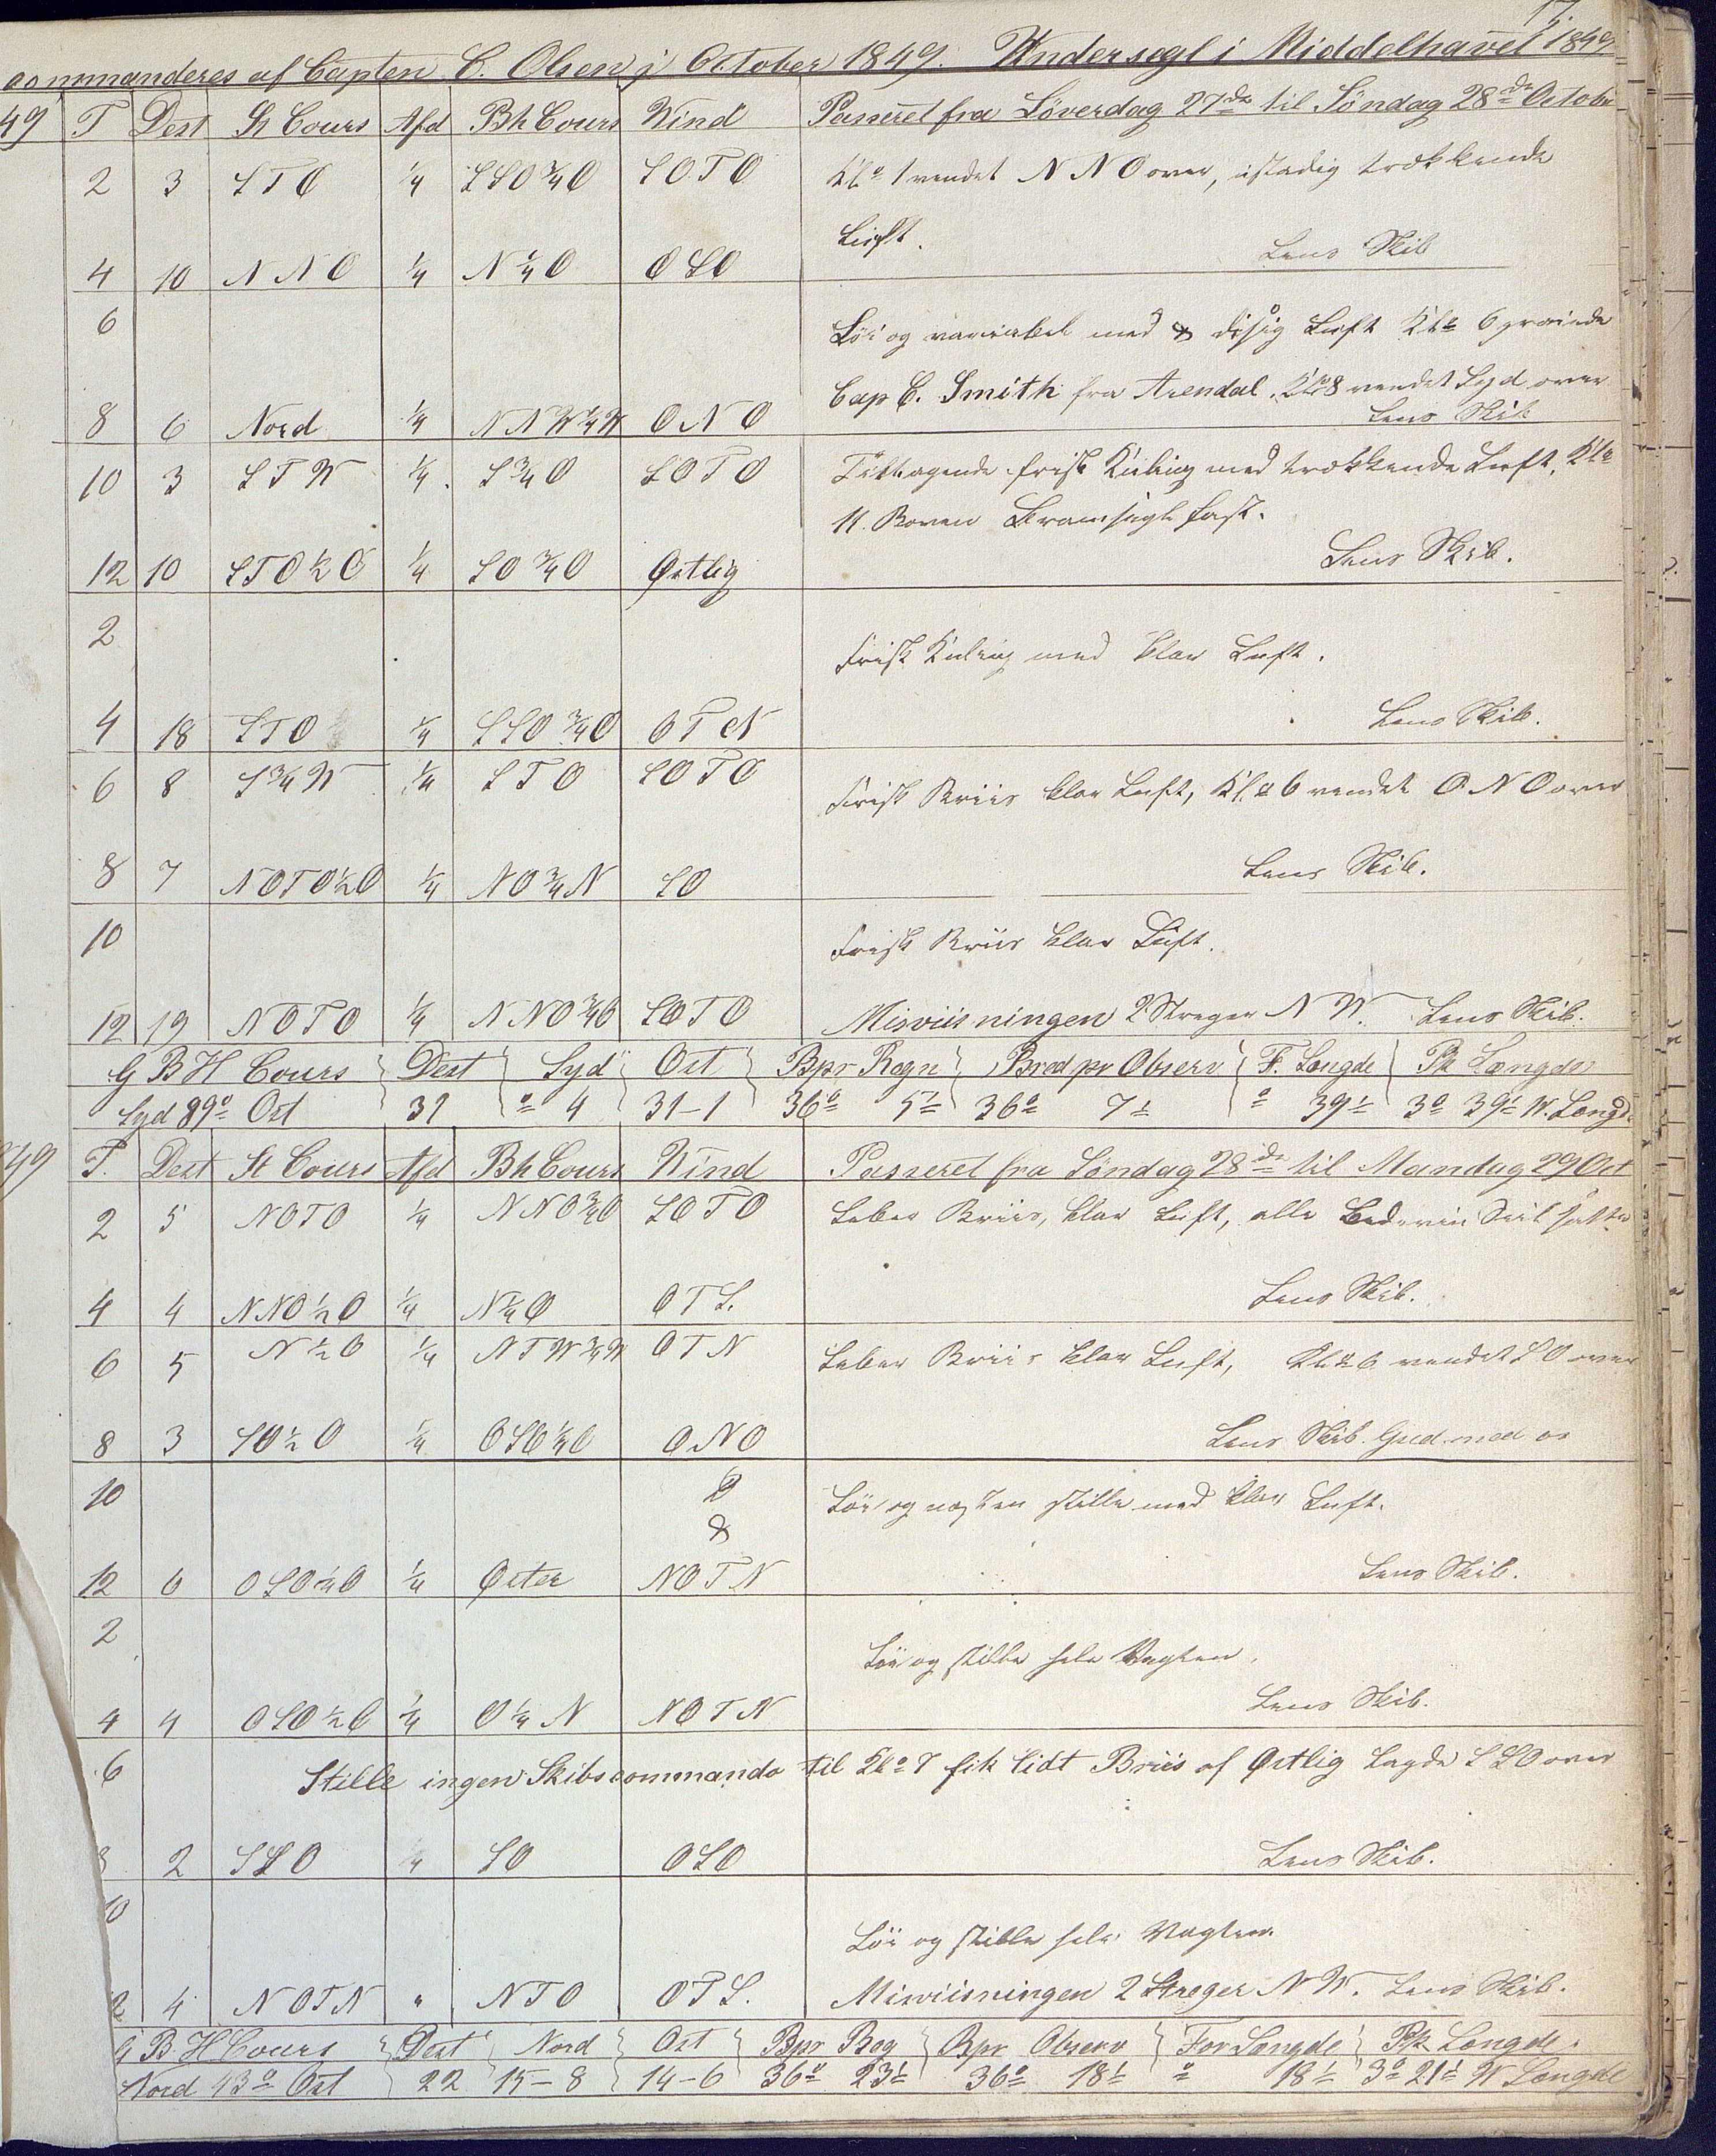 17.
commanderes af Capten C. Olsen i October 1849. Undersegl i Middelhavet 1849
49 T Dest St Cours Afd Bh Cours Wind Passeret fra Löverdag 27de til Söndag 28de Octobr
2 3 STO 1/4 SSO 3/4 O SOTO Kl. 1 vendet NNO over, ustadig trækkende
Luft.
4 10 NNO 1/4 N 1/4 O OSO Lens Skib
6 Löi og variabel med & disig Luft Kl. 6 praiede
Cap C. Smith fra Arendal. Kl. 8 vendet Syd over
8 6 Nord 1/4 NNW 1/4 W ONO Lens Skib
10 3 STW 1/4 S 3/4 O SOTO Tiltagende frisk Kuling med trækkende Luft. Kl.
11. Boven Bramseigl fast.
12 10 STO 1/2 O 1/4 SO 3/4 O Østlig Lens Skib.
2 Frisk Kuling med klar Luft.
4 18 STO 1/4 SSO 3/4 O OTN Lens Skib.
6 8 S 3/4 W 1/4 STO SOTO Frisk Briis klar Luft, Kl. 6 vendet ONO over
8 7 NOTO 1/2 O 1/4 NO 3/4 N SO Lens Skib.
10 Frisk Briis klar Luft.
12 19 NOTO 1/4 NNO 3/4 O SOTO Misviisningen 2 Streger NW. Lens Skib.
G B H Cours Dest Syd Ost Bpr Regn Bred pr Observ F. Længde Pk Længde
Syd 89° Ost 31 " 4 31-1 36° 5' 36° 7' " 39' 3° 39' W. Længd.
49 T. Dest St Cours Afd Bh Cours Wind Passeret fra Söndag 28de til Mandag 29 Oct
2 5 NOTO 1/4 NNO 3/4 O SOTO Laber Briis, klar Luft, alle Seil satte
4 4 NNO 1/2 O 1/4 N 1/4 O OTS. Lens Skib.
6 5 N 1/2 O 1/4 NTW 3/4 W OTN Laber Briis klar Luft, Kl. 6 vendet SO over
8 3 SO 1/2 O 1/4 OSO 1/4 O ONO Lens Skib. Gud med os
10 & Löi og næsten stille med klar Luft.
&
12 6 OSO 1/4 O 1/4 Øster NOTN Lens Skib.
2 Löi og stille hele Vagten.
4 4 OSO 1/2 O 1/4 O 1/4 N NOTN Lens Skib.
6 Stille ingen Skibscommando til Kl. 7 fik lidt Briis af Østlig Lagde SSO over
8 2 SSO " SO OSO Lens Skib.
10 Löi og stille hele Vagten.
2 4 NOTN " NTO OTS. Misviisningen 2 Streger NW. Lens Skib.
G B H Cours Dest Nord Ost Bpr Reg Bpr Observ For Længde Pk Længde.
Nord 43° Ost 22 15-8 14-6 36° 23' 36° 18' " 18' 3° 21' W Længde